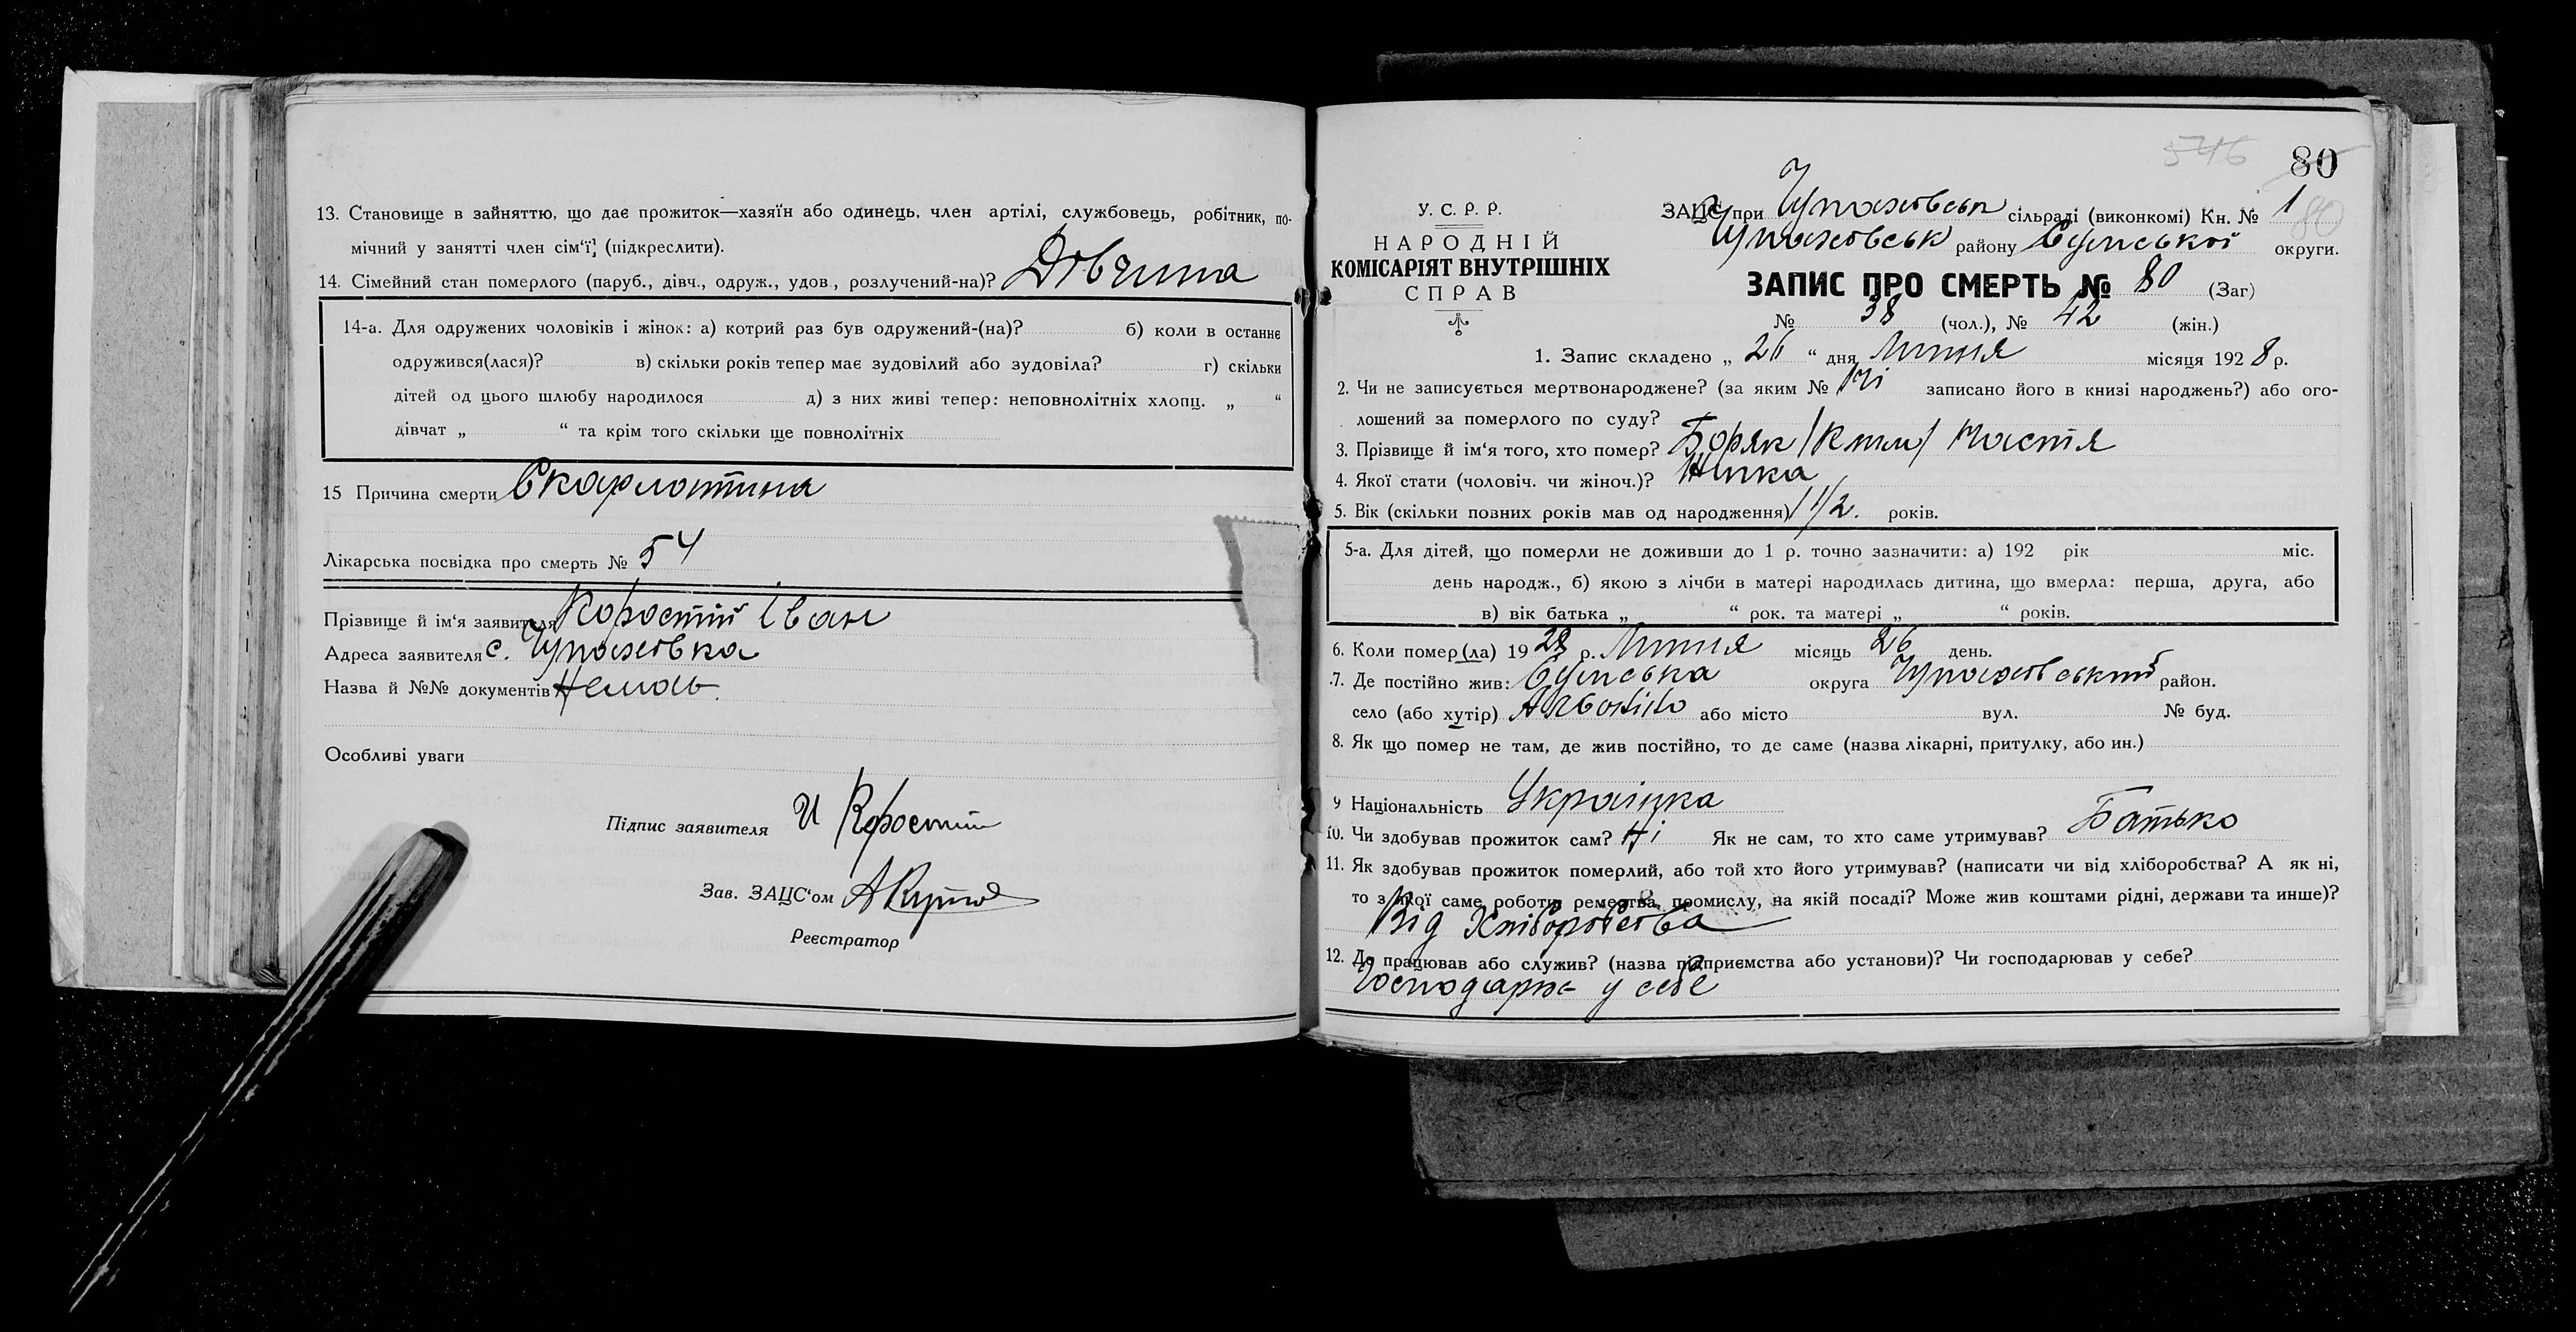 13. Становище в зайняттю, що дає прожиток—хазяїн або одинець, член артілі, службовець, робітник, по-
мічний у занятті член сім'ї, (підкреслити).
14. Сімейний стан померлого (паруб., дівч., одруж., удов., розлучений-на)? Дівчина
14-а. Для одружених чоловіків і жінок: а) котрий раз був одружений-(на)? б) коли в останнє
одружився(лася)? в) скільки років тепер має зудовілий або зудовіла? г) скільки
дітей од цього шлюбу народилося д) з них живі тепер: неповнолітніх хлопц. „ “
дівчат „ “ та крім того скільки ще повнолітніх
15 Причина смерти Скарлатина
Лікарська посвідка про смерть № 54
Прізвище й ім'я заявителя Коростій Іван
Адреса заявителя с. Чупахівка
Назва й №№ документів Немає
Особливі уваги
Підпис заявителя И Коростій
Зав. ЗАЦС'ом
Реєстратор
546
80
У. С. Р. Р.
НАРОДНІЙ
КОМІСАРІЯТ ВНУТРІШНІХ
СПРАВ
ЗАЦС при Чупахівськ сільраді (виконкомі) Кн. № 1
80
Чупахівськ району Сумської округи.
ЗАПИС ПРО СМЕРТЬ № 80 (Заг)
№ 38 (чол.), № 42 (жін.)
1. Запис складено „ 26 “ дня Липня місяця 1928 р.
2. Чи не записується мертвонароджене? (за яким № Ні записано його в книзі народжень?) або ого-
лошений за померлого по суду?
3. Прізвище й ім'я того, хто помер? Боряк Настя
4. Якої стати (чоловіч. чи жіноч.)? Жінка
5. Вік (скільки повних років мав од народження) 1 1/2. років.
5-а. Для дітей, що померли не доживши до 1 р. точно зазначити: а) 192 рік міс.
день народж., б) якою з лічби в матері народилась дитина, що вмерла: перша, друга, або
в) вік батька „ “ рок. та матері „ “ років.
6. Коли помер(ла) 1928 р. Липня місяць 26 день.
7. Де постійно жив: Сумська округа Чупахівський район.
село (або хутір) або місто вул. № буд.
8. Як що помер не там, де жив постійно, то де саме (назва лікарні, притулку, або ин.)
9 Національність Українка
10. Чи здобував прожиток сам? Ні Як не сам, то хто саме утримував? Батько
11. Як здобував прожиток померлий, або той хто його утримував? (написати чи від хліборобства? А як ні,
то з якої саме роботи, ремества, промислу, на якій посаді? Може жив коштами рідні, держави та инше)?
Від Хліборобства
12. Де працював або служив? (назва підприємства або установи)? Чи господарював у себе?
Господарює у себе